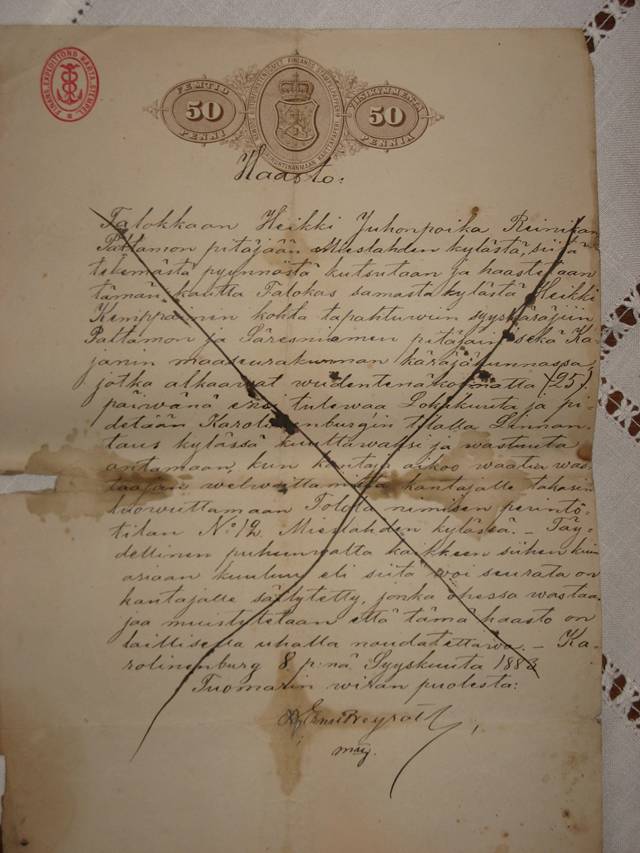 FINANS EXPEDITIONS KARTA STEMPEL
FEMTIO
50
PENNI
WIISIKYMMENTÄ
50
PENNIÄ
Haasto:
Talokkaan Heikki Juhonpoika Reinikan
Paltamon pitäjään Mieslahden kylästä, siitä
telemästä pyynnöstä kutsutaan ja haastetaan
tämän kautta Talokas samasta kylästä Heikki
Kemppainen kohta tapahtuwiin syyskäräjiin
Paltamon ja Säresniemen pitäjäin sekä Ka-
janin maaseurakunnan käräjäkunnassa,
jotka alkaawat wiidentenäkolmatta (25)
päiwänä ensi tulewaa Lokakuuta ja pi-
detään Karolinenburgin tilalla Linnan-
taus kylässä kuultawaksi ja wastuuta
antamaan, kun kantaja aikoo waatia was-
taajan welwoittamista kantajalle takasin
luowuttamaan Tolola nimisen perintö-
tilan No 12 Mieslahden kylässä. – Täy-
dellinen puhunwalta kaikkeen siihen kuin
asiaan kuuluu eli siitä woi seurata on
kantajalle säilytetty, jonka ohessa wastaa-
jaa muistutetaan että tämä haasto on
laillisella uhalla noudatettawa. – Ka-
rolinenburg 8 p:nä Syyskuuta 1883
Tuomarin wiran puolesta: